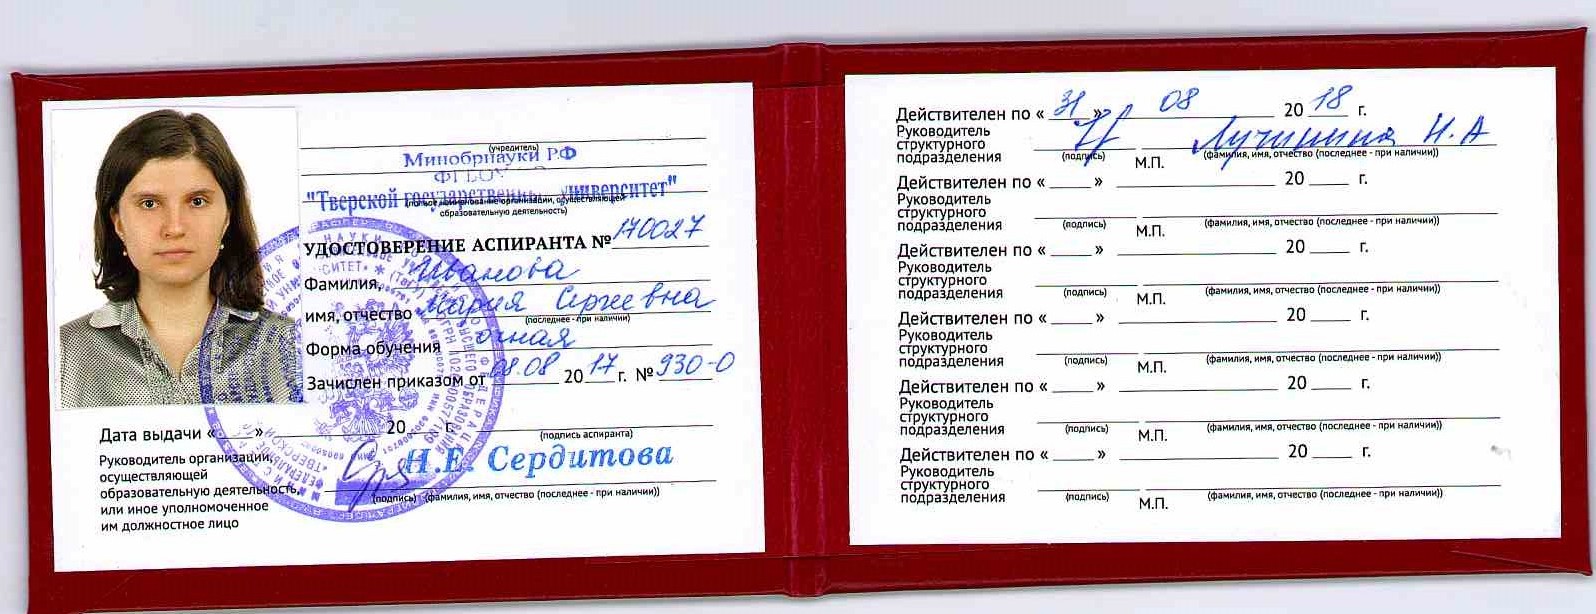 (учредитель)
Минобрнауки РФ
ФГБОУ
"Тверской государственный университет"
(полное наименование организации, осуществляющей
образовательную деятельность)
УДОСТОВЕРЕНИЕ АСПИРАНТА № 170027
Фамилия, Иванова
имя, отчество Мария Сергеевна
(последнее - при наличии)
Форма обучения очная
Зачислен приказом от 08.08 2017 г. № 930-О
Дата выдачи «____» ____ 20 ____ г.
(подпись аспиранта)
Руководитель организации,
осуществляющей
образовательную деятельность,
или иное уполномоченное
им должностное лицо
Н.Е. Сердитова
(подпись) (фамилия, имя, отчество (последнее - при наличии))
Действителен по « 31 » 08 20 18 г.
Руководитель
структурного
подразделения
Н.А
(подпись) М.П. (фамилия, имя, отчество (последнее - при наличии))
Действителен по «____» ____ 20 ____ г.
Руководитель
структурного
подразделения
(подпись) М.П. (фамилия, имя, отчество (последнее - при наличии))
Действителен по «____» ____ 20 ____ г.
Руководитель
структурного
подразделения
(подпись) М.П. (фамилия, имя, отчество (последнее - при наличии))
Действителен по «____» ____ 20 ____ г.
Руководитель
структурного
подразделения
(подпись) М.П. (фамилия, имя, отчество (последнее - при наличии))
Действителен по «____» ____ 20 ____ г.
Руководитель
структурного
подразделения
(подпись) М.П. (фамилия, имя, отчество (последнее - при наличии))
Действителен по «____» ____ 20 ____ г.
Руководитель
структурного
подразделения
(подпись) М.П. (фамилия, имя, отчество (последнее - при наличии))